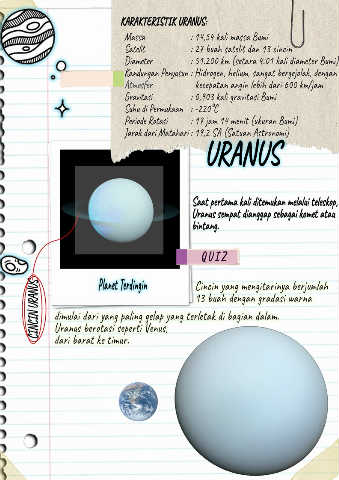 KARAKTERISTIK URANUS:
Massa : 14,54 kali massa Bumi
Satelit : 27 buah satelit dan 13 cincin
Diameter : 51.200 km (setara 4,01 kali diameter Bumi)
Kandungan Penyusun : Hidrogen, helium, sangat bergejolak, dengan
Atmosfer kecepatan angin lebih dari 600 km/jam
Gravitasi : 0,903 kali gravitasi Bumi
Suhu di Permukaan : -220°C
Periode Rotasi : 17 jam 14 menit (ukuran Bumi)
Jarak dari Matahari : 19,2 SA (Satuan Astronomi)
URANUS
Saat pertama kali ditemukan melalui teleskop,
Uranus sempat dianggap sebagai komet atau
bintang.
QUIZ
Planet Terdingin
CINCIN URANUS
Cincin yang mengitarinya berjumlah
13 buah dengan gradasi warna
dimulai dari yang paling gelap yang terletak di bagian dalam.
Uranus berotasi seperti Venus,
dari barat ke timur.